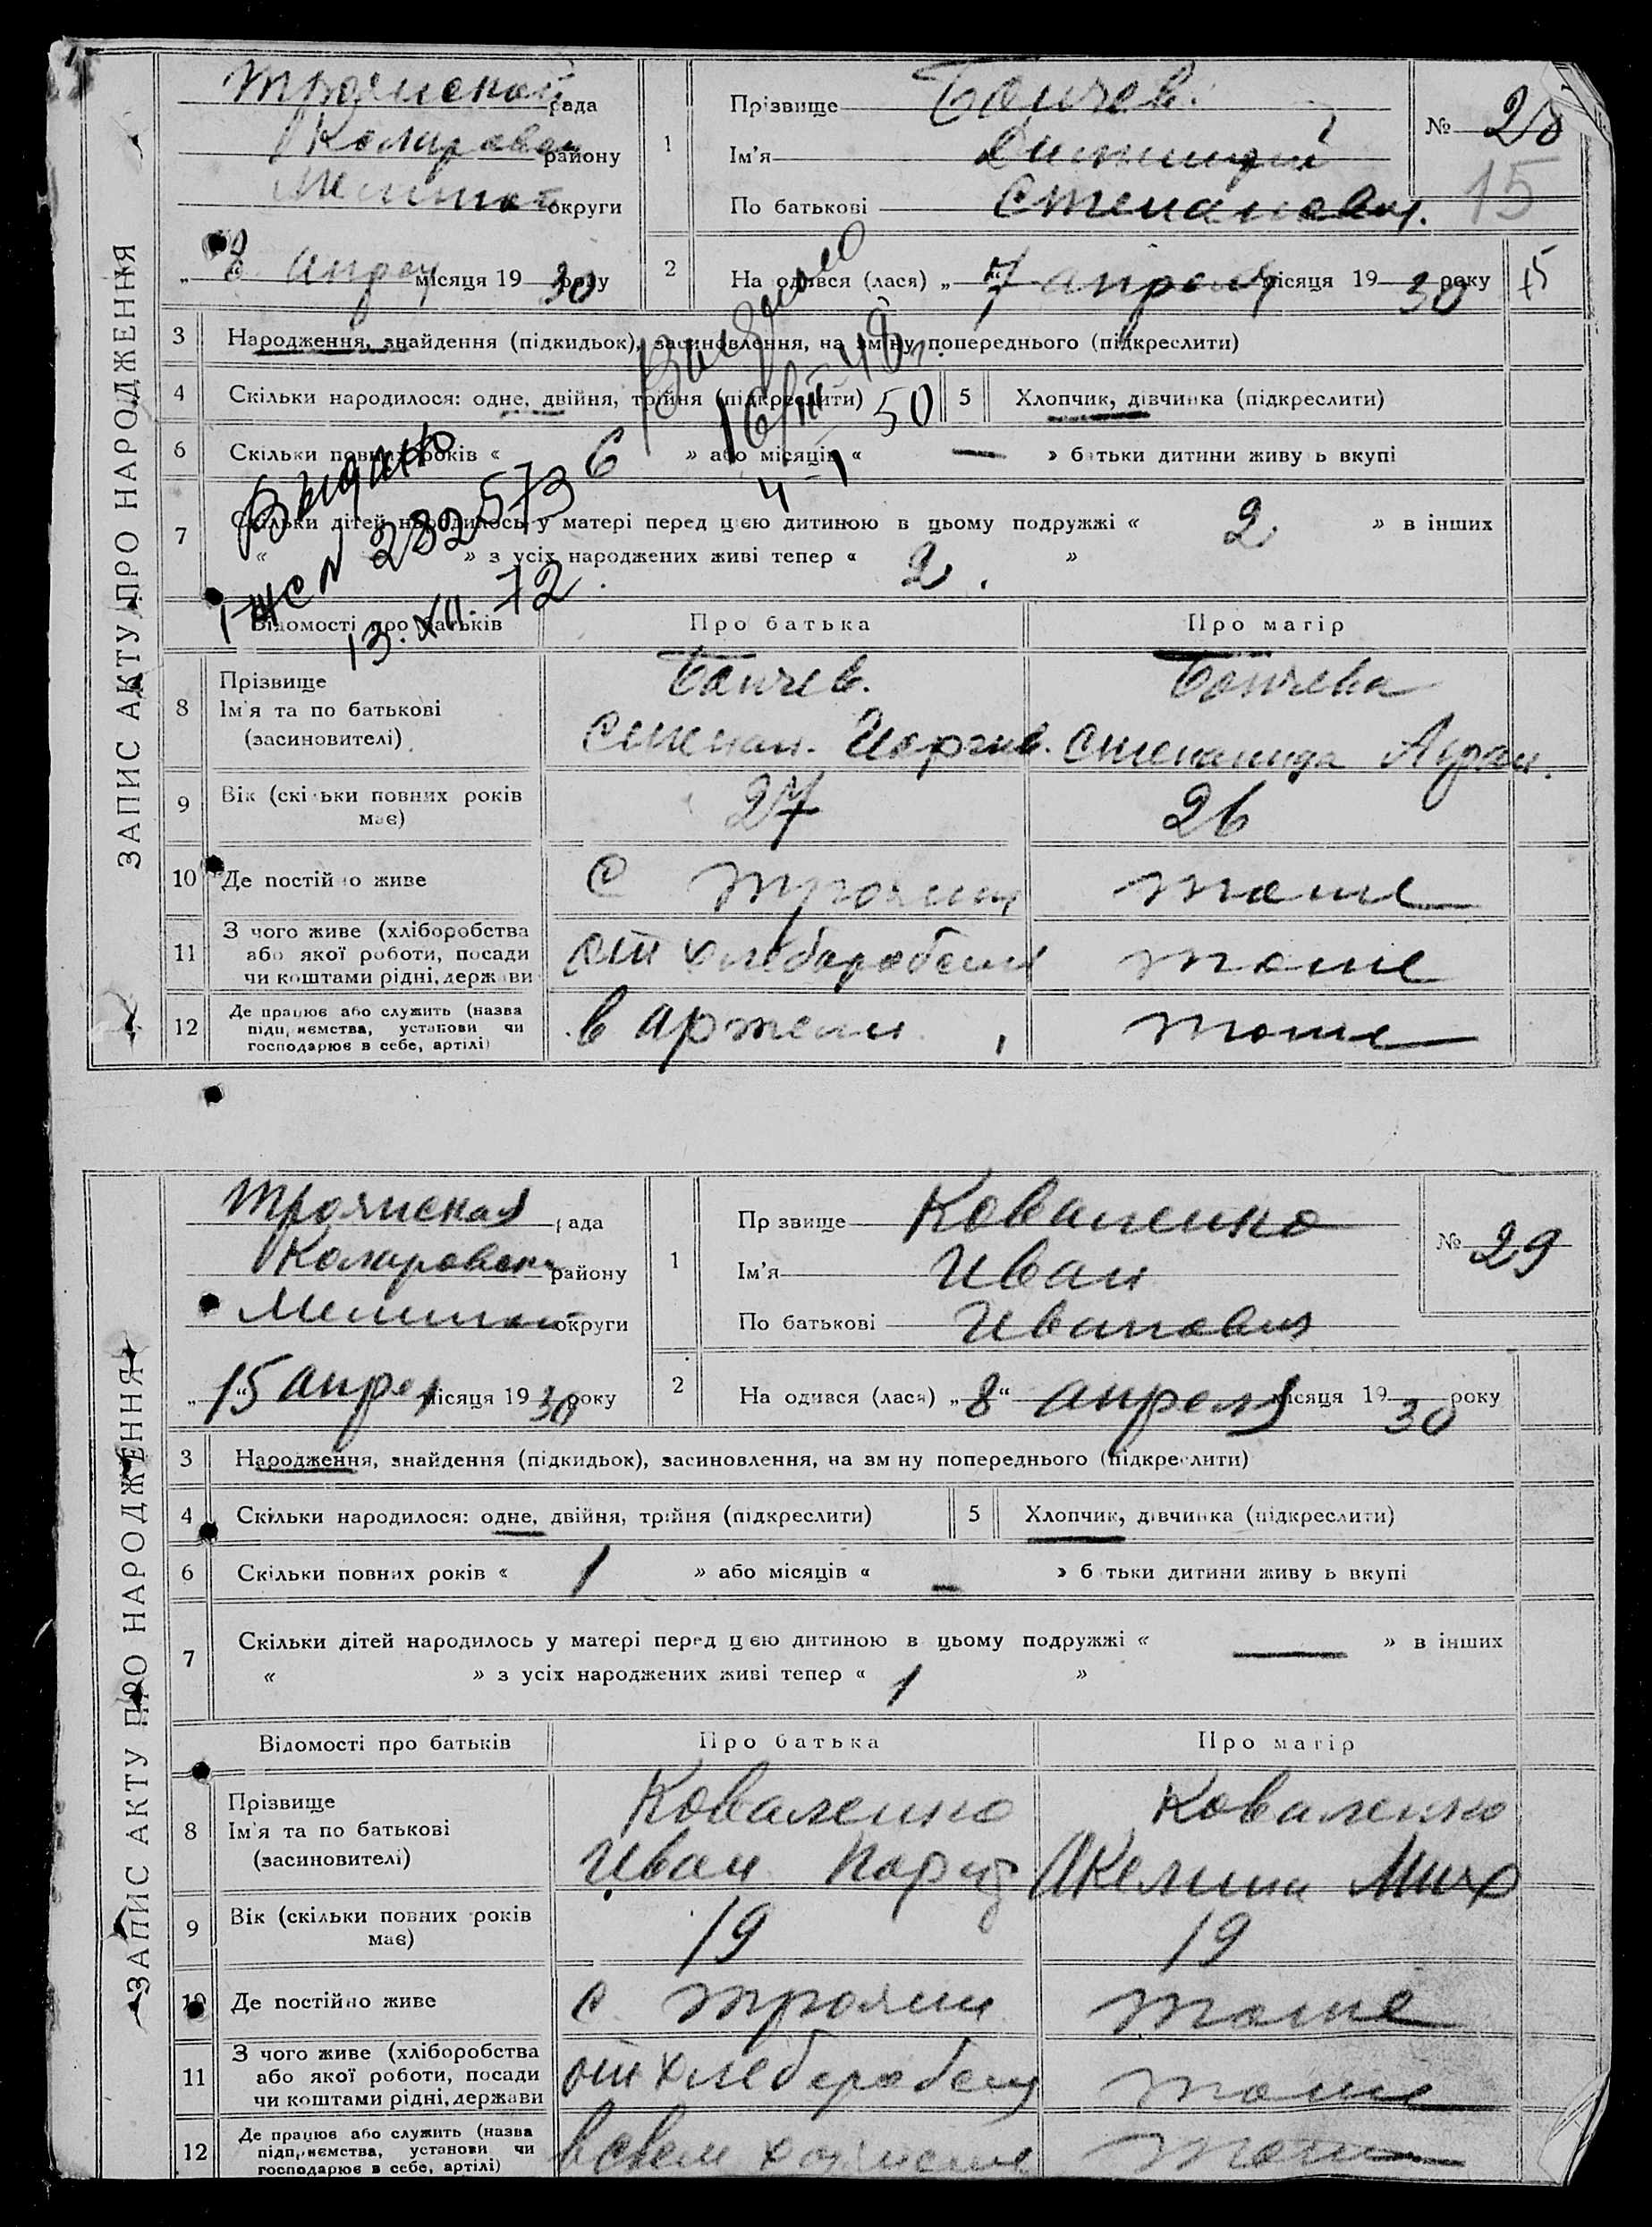 ЗАПИС АКТУ ПРО НАРОДЖЕННЯ
Троянской рада
Коларовск району
Мелитоп округи
8 апрел місяця 1930 року
1 Прізвище Бончев.
Ім'я Димитрий
По батькові Степанович.
№ 28
15
2 На одився (лася) „7“ апреля місяця 1930 року
15
3 Народження, знайдення (підкидьок), засиновлення, на зміну попереднього (підкреслити)
4 Скільки народилося: одне, двійня, трійня (підкреслити) 50
5 Хлопчик, дівчинка (підкреслити)
6 Скільки повних років « 6 » або місяців « — » батьки дитини живу ь вкупі
7 Скільки дітей народилось у матері перед цією дитиною в цьому подружжі « 2. » в інших
« » з усіх народжених живі тепер « 2. »
Выдано
16/III 48г.
4-1
Выдано
I-ЖС № 282573
13.XII.72
Відомості про батьків Про батька Про матір
8 Прізвище Бончев. Бончева
Ім'я та по батькові
(засиновителі) Степан. Георгиев. Степанида
9 Вік (скі ьки повних років 27 26
має)
10 Де постійно живе с Трояны тоже
11 З чого живе (хліборобства
або якої роботи, посади от хлеборобства тоже
чи коштами рідні, держави
12 Де працює або служить (назва
підприємства, установи чи в артели тоже
господарює в себе, артілі)
ЗАПИС АКТУ ПРО НАРОДЖЕННЯ
Троянская рада
Коларовск району
Мелитоп округи
„15“ апрел місяця 1930 року
1 Пр звище Коваленко
Ім'я Иван
По батькові Иванович
№ 29
2 На одився (лася) „8“ апреля місяця 1930 року
3 Народження, знайдення (підкидьок), засиновлення, на зм ну попереднього (підкреслити)
4 Скільки народилося: одне, двійня, трійня (підкреслити)
5 Хлопчик, дівчинка (підкреслити)
6 Скільки повних років « 1 » або місяців « — » б тьки дитини живу ь вкупі
7 Скільки дітей народилось у матері перед цією дитиною в цьому подружжі « — » в інших
« » з усіх народжених живі тепер « 1 »
Відомості про батьків Про батька Про матір
8 Прізвище Коваленко Коваленко
Ім'я та по батькові
(засиновителі) Иван Акелина Мих
9 Вік (скільки повних років 19 19
має)
10 Де постійно живе с. Трояны тоже
11 З чого живе (хліборобства
або якої роботи, посади от хлеборобства тоже
чи коштами рідні, держави
12 Де працює або служить (назва
підприємства, установи чи в своем хозяйстве тоже
господарює в себе, артілі)